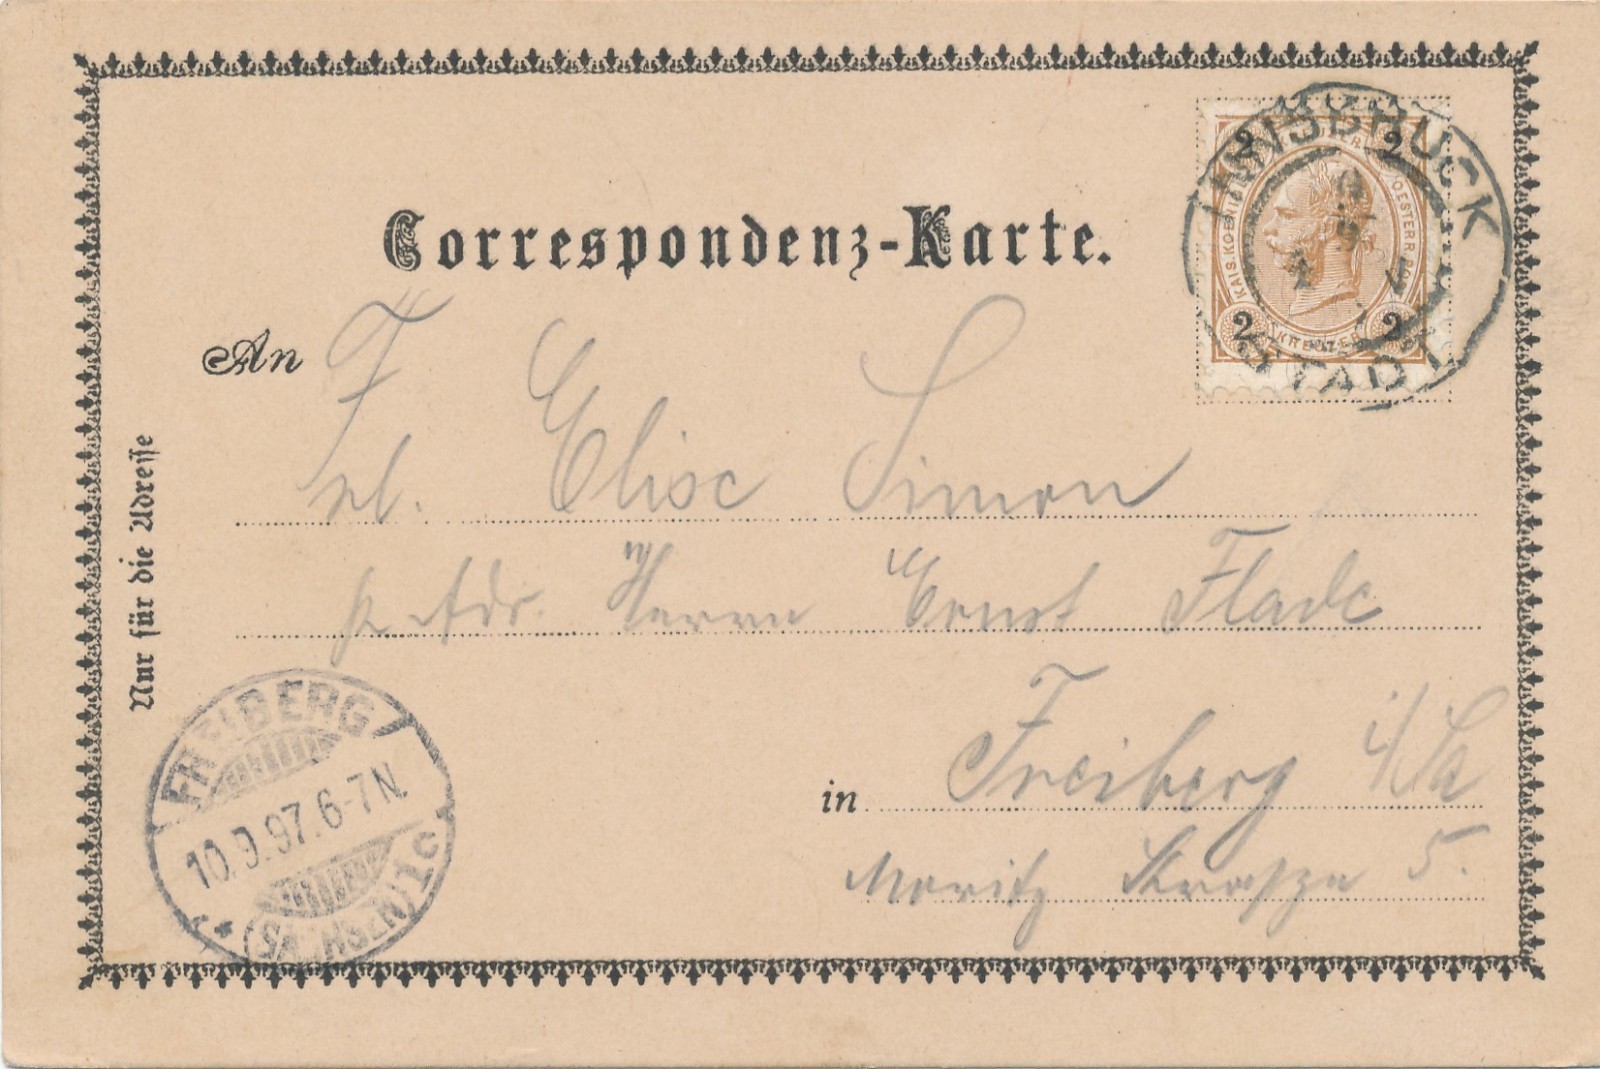 Correspondenz-Karte.
INNSBRUCK
STADT
2 2
KAIS. KOENIGL. OESTERR. POST
2 KREUZER 2
An
Frl. Elise Simon
p. Adr. Herrn Ernst Flade
in Freiberg i/Sa
Moritz Strasze 5.
Nur für die Adresse
FREIBERG
10.9.97. 6-7N.
(SACHSEN) 1c